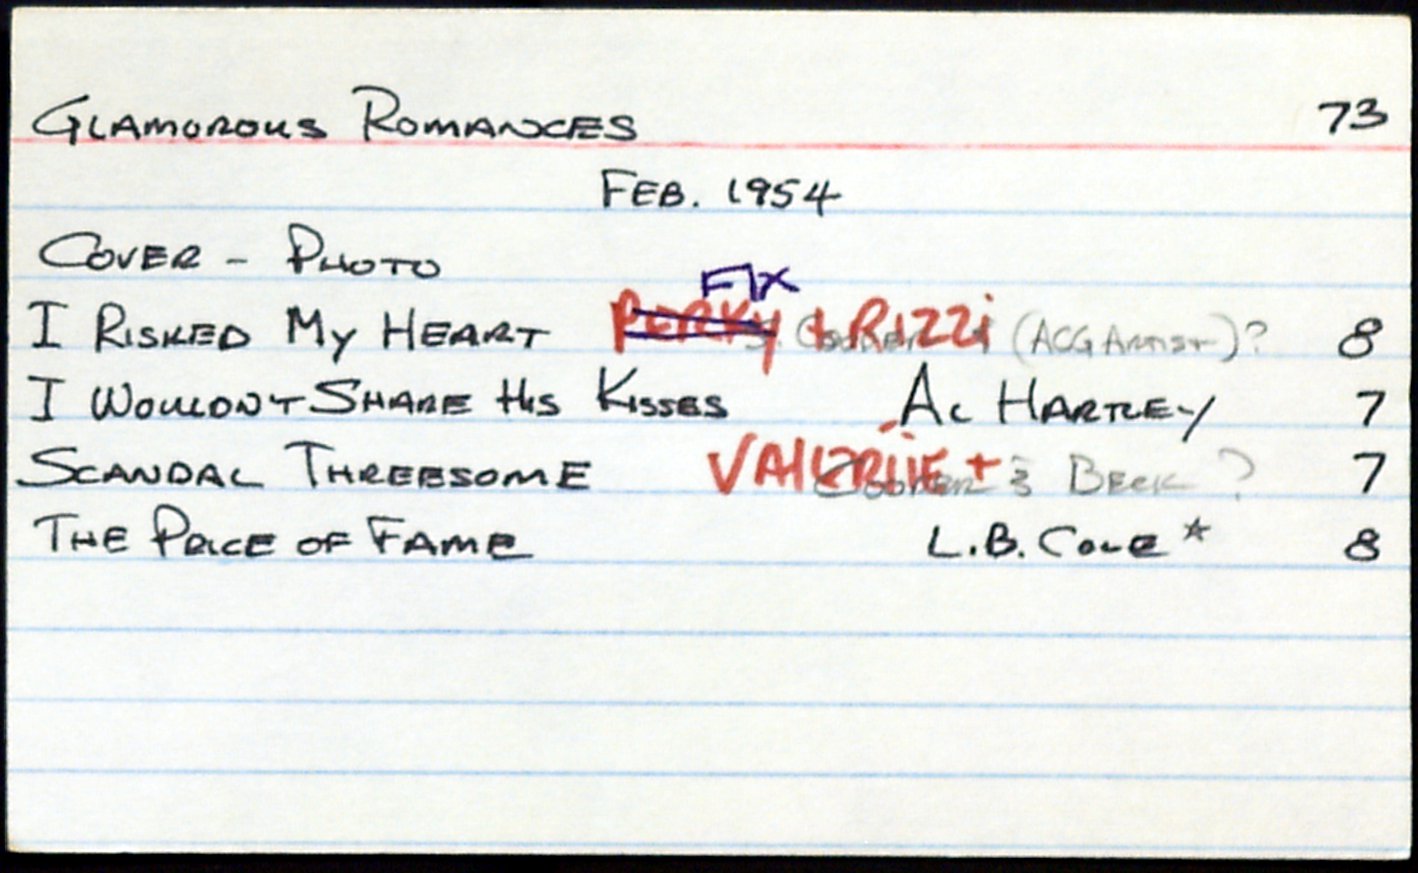 GLAMOROUS ROMANCES 73
FEB. 1954
COVER - PHOTO
FIX
I RISKED MY HEART PERKY + RIZZI (ACG ARTIST)? 8
I WOULDN'T SHARE HIS KISSES AL HARTLEY 7
SCANDAL THREESOME VALLERIE + COOPER & BECK ? 7
THE PRICE OF FAME L.B. COLE * 8